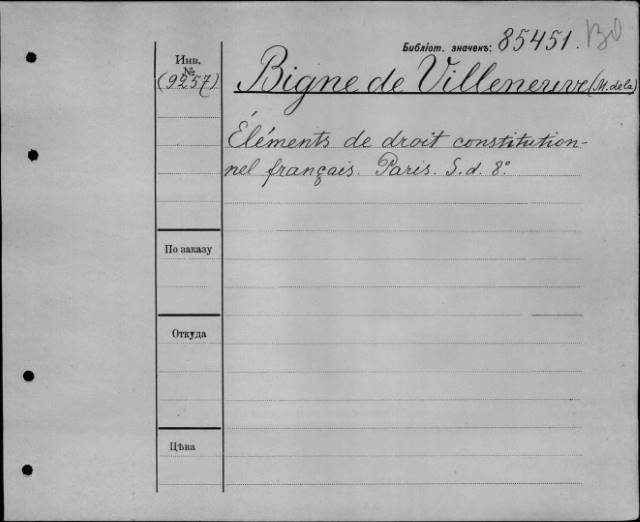 Библіот. значекъ: 85451.
Инв.
№
(9257)
Bigne de Villeneuve (M. de la)
Éléments de droit constitution-
nel français. Paris. S. d. 8°.
По заказу
Откуда
Цѣна